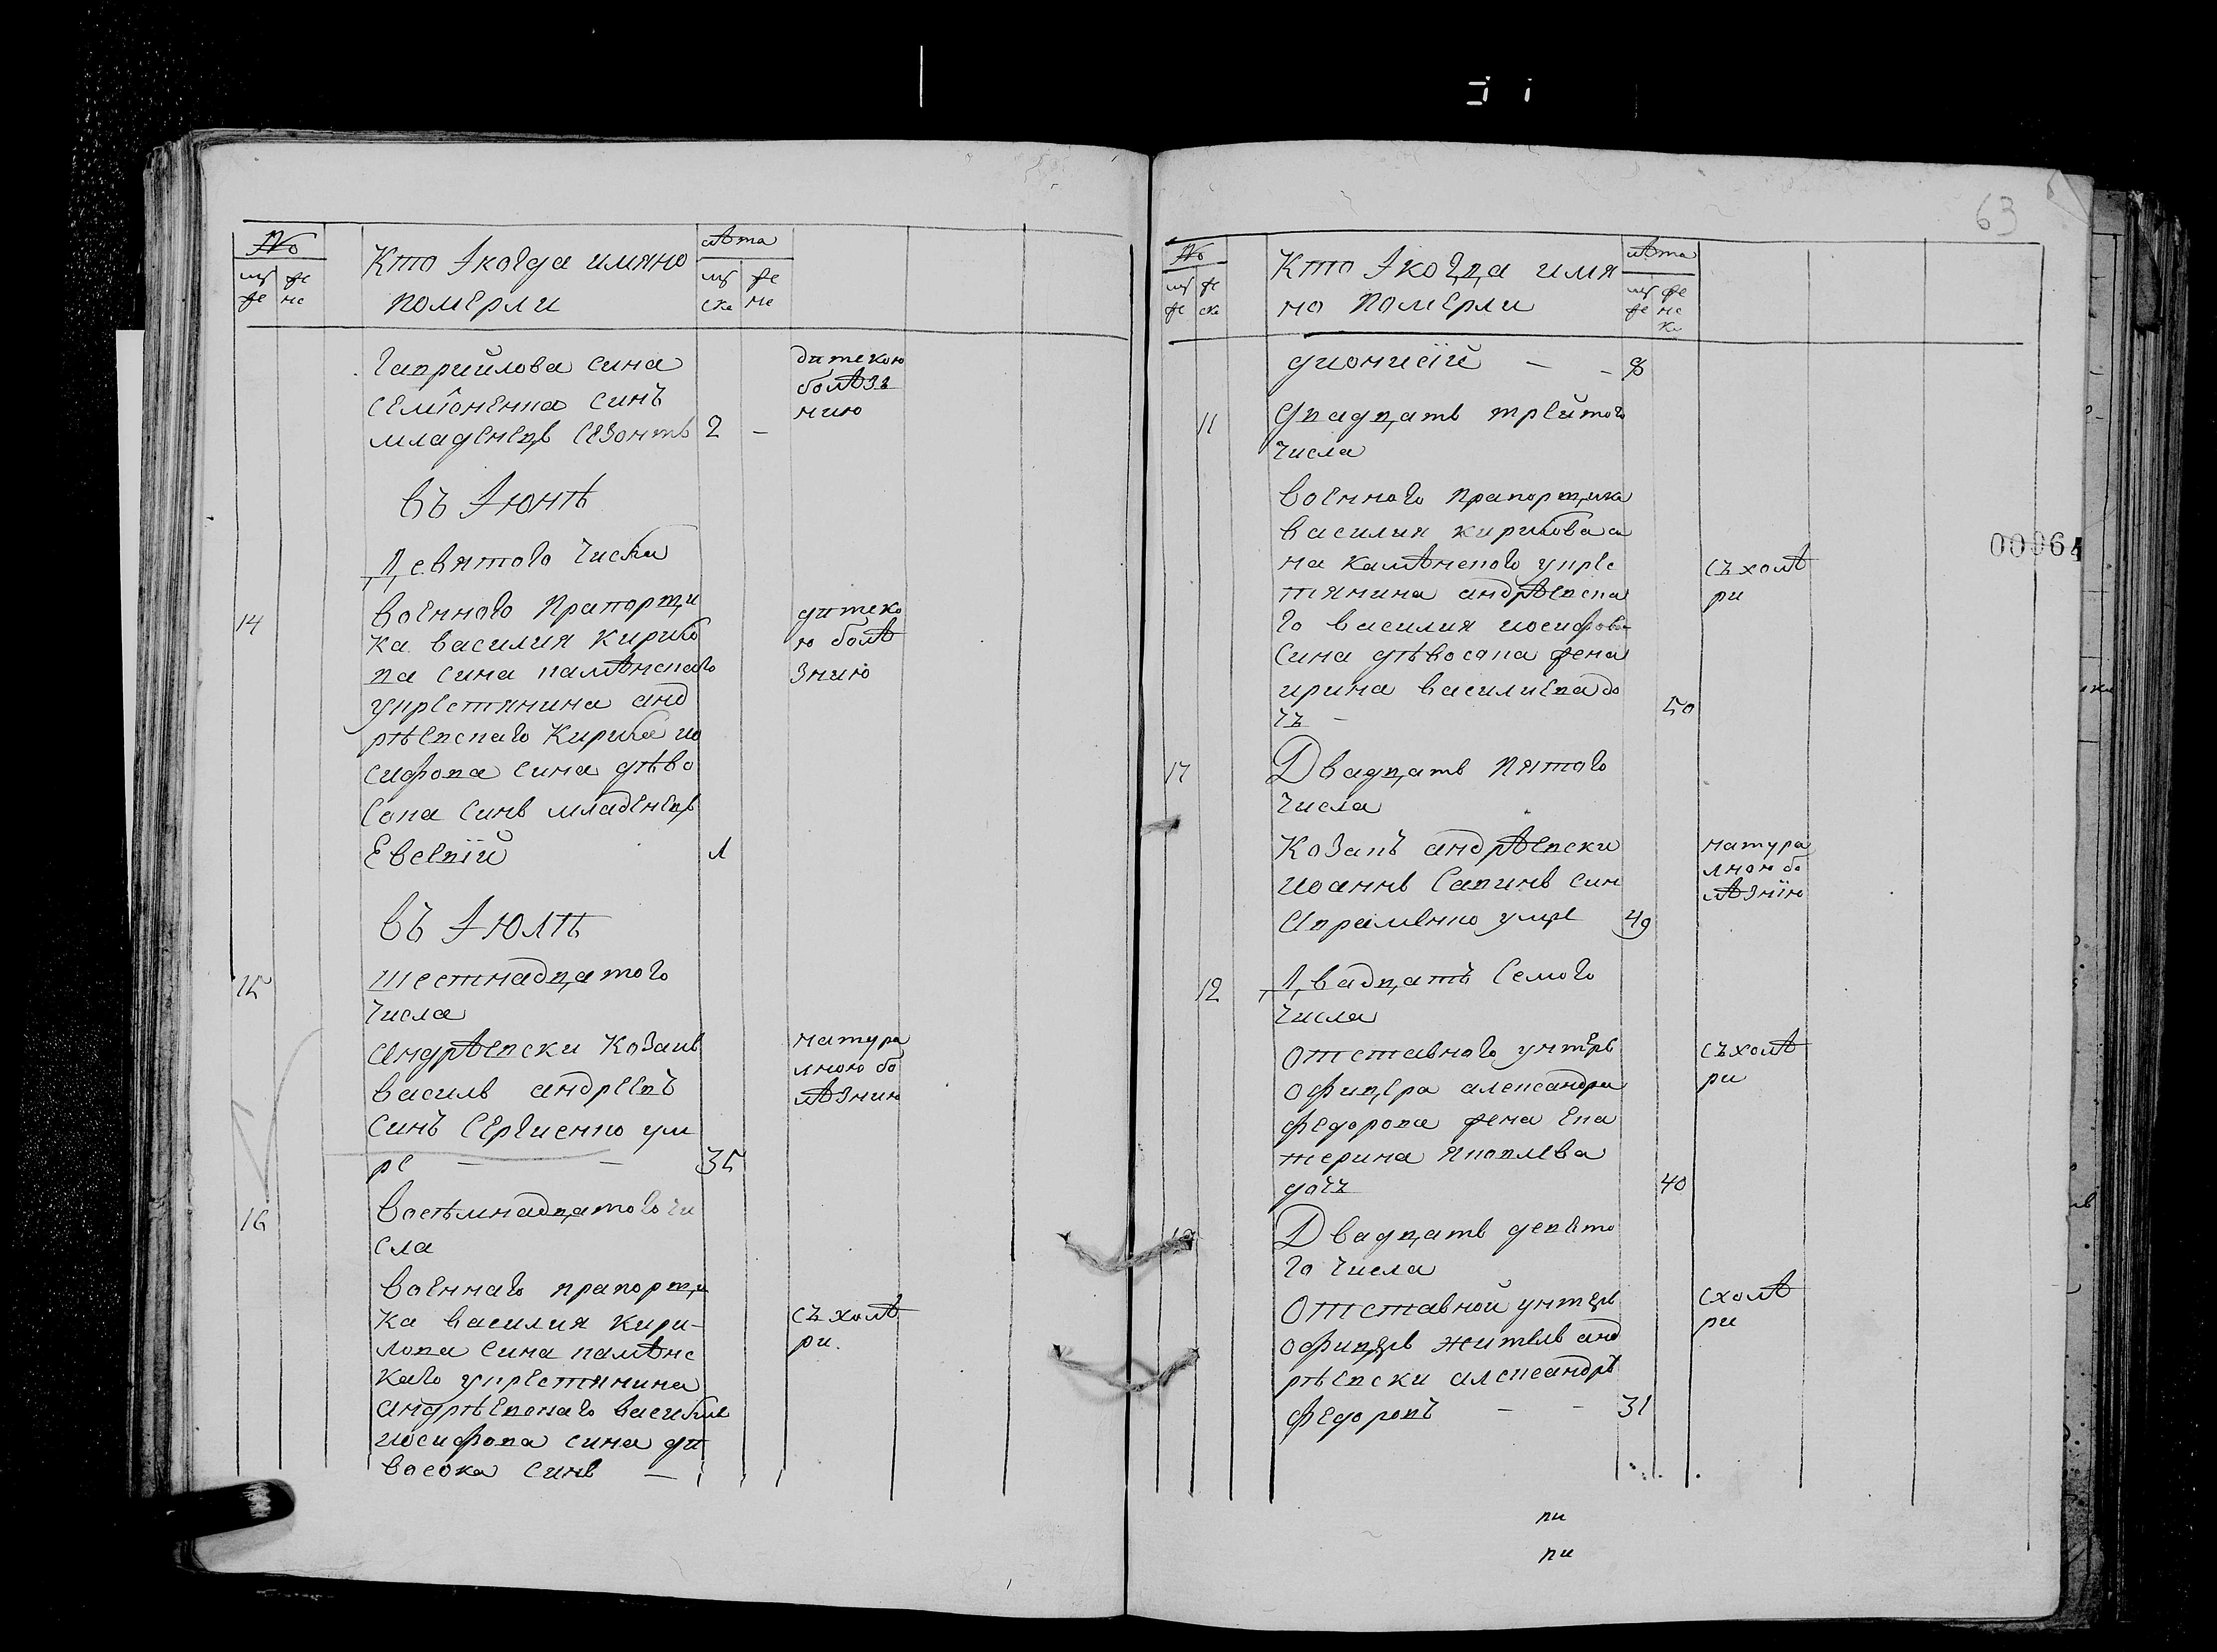 No
муже
жене
Кто Ікогда имяно
померли
лѣта
муске
жене
Гаприйлова сина
семіоненка синъ
младенецъ Созонтъ 2 –
дитскою
болѣзъ
нию
въ Іюнѣ
Девятого числа
14
военного прапорщи
ка василия кирило
ва сина камѣнскаго
укрестянина анд
рѣевскаго Кирила ио
сифова сина дѣво
сока синъ младенецъ
Евсевій 1
дитско
ю болѣ
знию
въ Іюлѣ
15
шестнадцатого
числа
андрѣевски козакъ
василь андреевъ
синъ Сергиенко ум
ре – – 35
натура
лною бо
лѣзнию
16
восѣмнадцатого чи
сла
военнаго прапорщи
ка василия кири-
лова сина камѣнс
каго укрестянина
андрѣевскаго василия
иосифова сина дѣ
восока синъ –
съ холѣ
ри.
63
No
муже
жеске
Кто Ікогда имя
но померли
лѣта
муже
женске
дионисій – – 8
11
Двадцать трейтого
числа
военного прапорщика
василия кирилова си
на камѣнского укре
тянина андрѣевска
го василия иосифова
сина дѣвосока жена
ирина василиева до
чъ – 50
съ холѣ
ри
17
Двадцать пятого
числа
Козакъ андрѣевски
иоаннъ Савинъ син
Авраменко умре 49
натура
лною бо
лѣзнію
12
Двадцать семого
числа
отставного унтеръ
офицера александра
федорова жена Ека
терина Яковлева
дочъ 40
съ холѣ
ри
Двадцать девято
го числа
Отставной унтеръ
офицеръ житель анд
рѣевски александръ
федоровъ – – 31
схолѣ
ри
00064